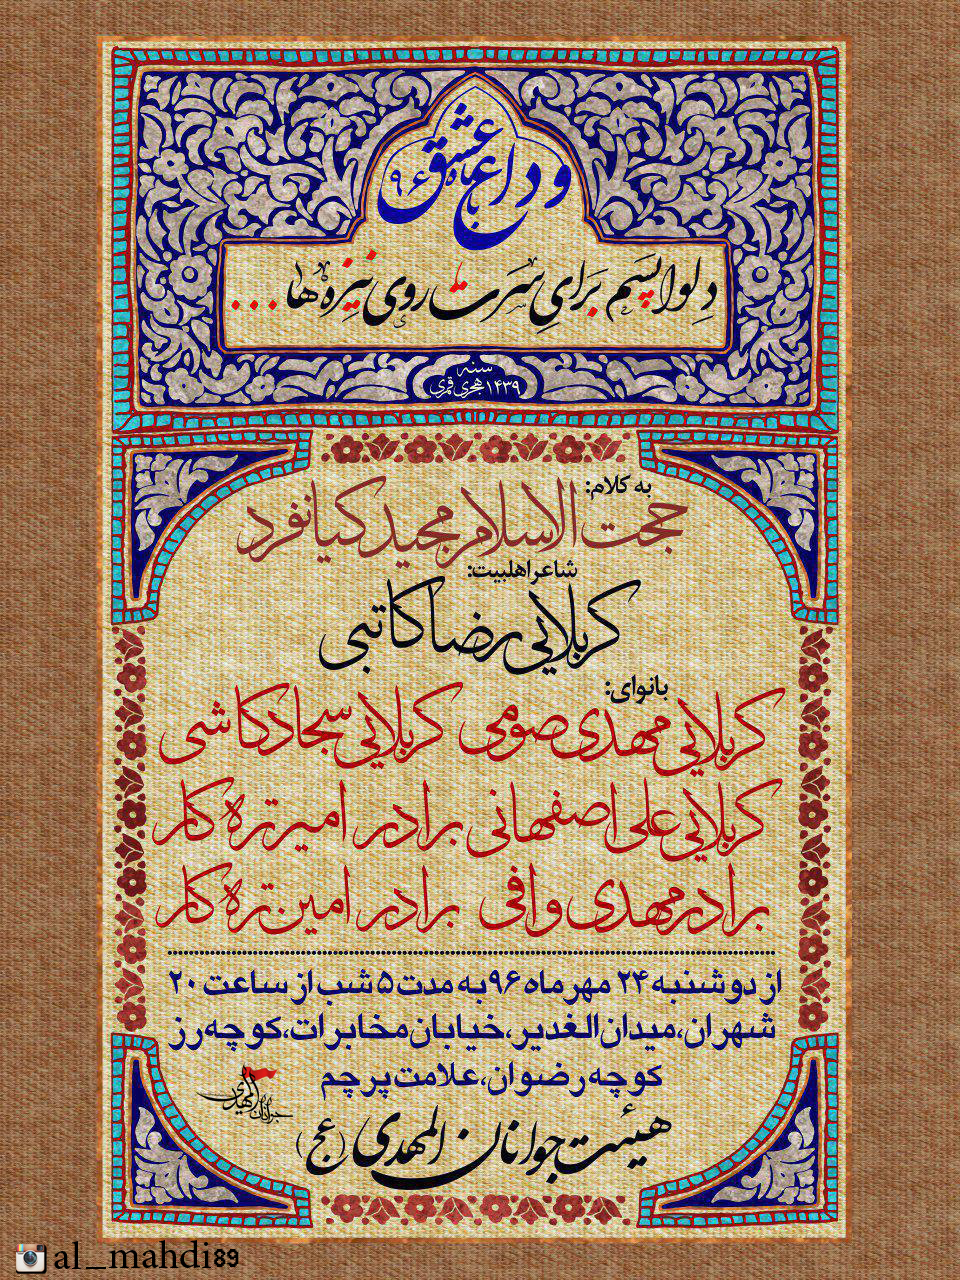 وداع با ماه عشق ۹۶
دلواپسم برای سرت روی نیزه ها...
سنه
۱۴۳۹ هجری قمری
به کلام:
حجت الاسلام مجید کیانفرد
شاعر اهلبیت:
کربلایی رضا کاتبی
بانوای:
کربلایی مهدی صومی کربلایی سجاد کاشی
کربلایی علی اصفهانی برادر امیر تره کار
برادر مهدی وافی برادر امین تره کار
از دوشنبه ۲۴ مهر ماه ۹۶ به مدت ۵ شب از ساعت ۲۰
شهران،میدان الغدیر،خیابان مخابرات،کوچه رز
کوچه رضوان،علامت پرچم
جوانان المهدی
هیئت جوانان المهدی (عج)
al_mahdi89